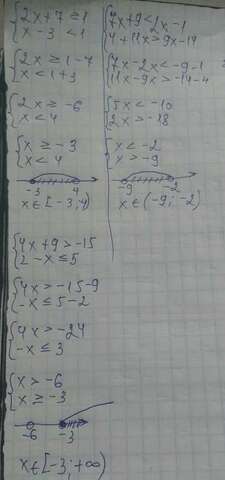 {2x+7≥1
x-3<1
{2x≥1-7
x<1+3
{2x≥-6
x<4
{x≥-3
x<4
-3 4
x∈[-3;4)
{7x+9<2x-1
4+11x>9x-14
{7x-2x<-9-1
11x-9x>-14-4
{5x<-10
2x>-18
{x<-2
x>-9
-9 -2
x∈(-9;-2)
{4x+9>-15
2-x≤5
{4x>-15-9
-x≤5-2
{4x>-24
-x≤3
{x>-6
x≥-3
-6 -3
x∈[-3;+∞)